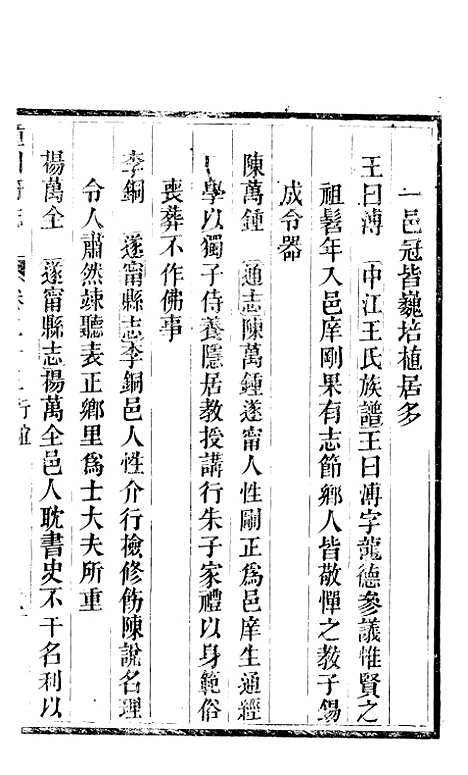 一邑冠皆巍培植居多
王曰溥　中江王氏族譜王曰溥字龍德參議惟賢之
祖髫年入邑庠剛果有志節鄉人皆敬憚之教子錫
成令器
陳萬鍾　通志陳萬鍾遂甯人性嚴正爲邑庠生通經
學以獨子侍養隱居教授講行朱子家禮以身範俗
喪葬不作佛事
李銅　遂甯縣志李銅邑人性介行檢修飭陳說名理
令人肅然竦聽表正鄉里爲士大夫所重
楊萬全　遂甯縣志楊萬全邑人耽書史不干名利以
行誼